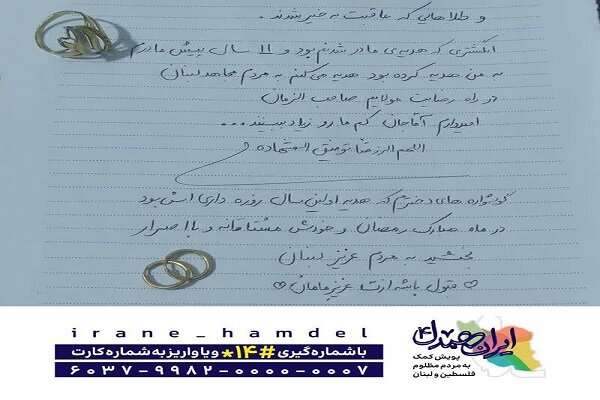 و طلاهایی که عاقبت به خیر شدند.
انگشتری که هدیه‌ی مادر شدنم بود و ۱۱ سال پیش مادرم
به من هدیه کرده بود هدیه می‌کنم به مردم مجاهد لبنان
در راه رضایت مولایم صاحب الزمان
امیدوارم آقاجان کم ما رو زیاد ببینید...
اللهم الرزقنا توفیق الشهاده
گوشواره های دخترم که هدیه اولین سال روزه داری اش بود
در ماه مبارک رمضان و خودش مشتاقانه و با اصرار
بخشید به مردم عزیز لبنان
♡ قبول باشه ازت عزیز مامان ♡
irane_hamdel
با شماره گیری #۱۴* و یا واریز به شماره کارت
۶۰۳۷-۹۹۸۲-۰۰۰۰-۰۰۰۷
ایران همدل
پویش کمک
به مردم مظلوم
فلسطین و لبنان